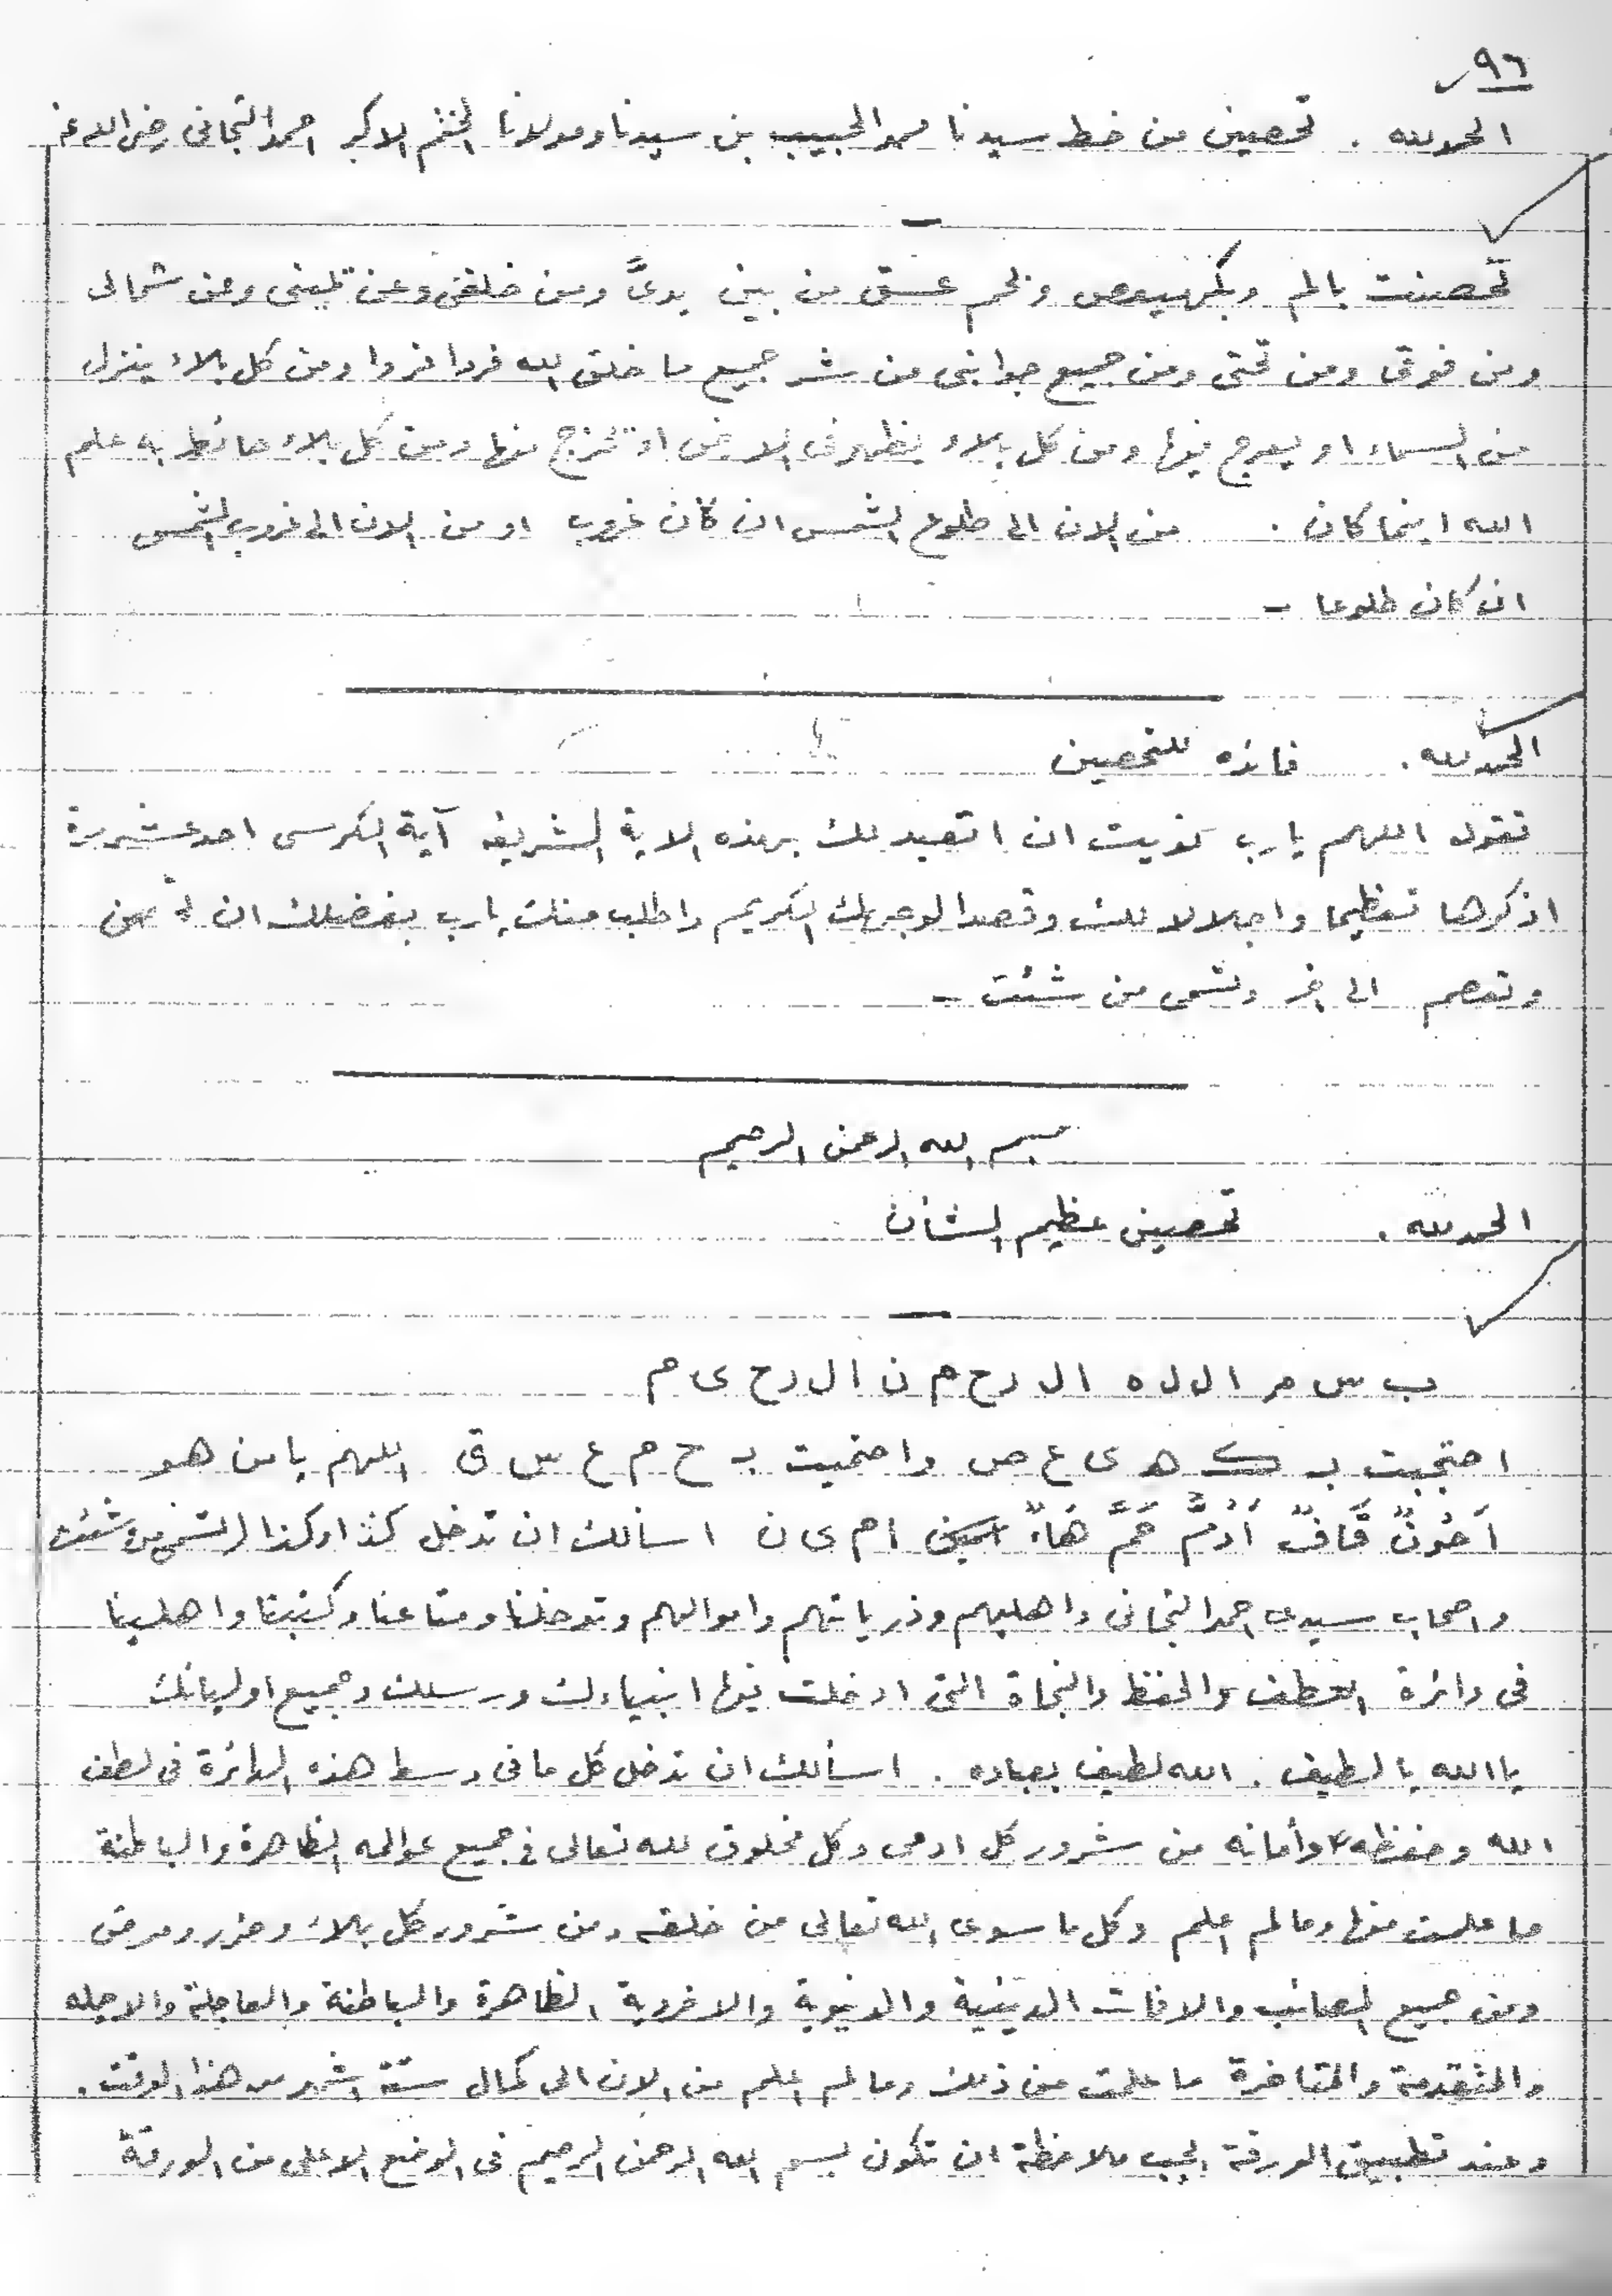 ٩٦
الحمد لله . تحصين من خط سيدنا محمد الحبيب بن سيدنا ومولانا الختم الاكبر احمد التجانى رضى الله عنه
تحصنت بالم وبكهيعص وبحم عسق من بين يدىّ ومن خلفى وعن يمينى وعن شمالى
ومن فوقى ومن تحتى ومن جميع جوانبى من شر جميع ما خلق الله فردا فردا ومن كل بلاء ينزل
من السماء او يعرج فيها ومن كل بلاء يظهر فى الارض او تخرج منها ومن كل بلاء حائط به علم
الله اينما كان . من الان الى طلوع الشمس ان كان غروب او من الان الى غروب الشمس
ان كان طلوعا -
الحمد لله . فائده للتحصين
تقول اللهم يارب نويت ان اتعبد لك بهذه الاية الشريفه آية الكرسى احد عشر مرة
اذكرها تعظيما واجلالا لك وقصدا لوجهك الكريم واطلب منك يارب بفضلك ان
وتعصم الى اخر وتسمى من شئت -
بسم الله الرحمن الرحيم
الحمد لله . تحصين عظيم الشأن
ب س م ا ل ل ه ا ل ر ح م ن ا ل ر ح ى م
احتجبت بـ ك هـ ى ع ص واحتميت بـ ح م ع س ق اللهم يا من هو
أَحُونٌ قَافٌ أَدُمَّ حَمَّ هَاءٌ ا م ى ن اسالك ان تدخل كذا وكذا (تسمى من شئت
واصحاب سيدى احمد التجانى واهليهم وذرياتهم واموالهم وتدخلنا ومتاعنا وكتبنا واهلينا
فى دائرة العطف والحفظ والنجاة التى ادخلت فيها انبياءك ورسلك وجميع اوليائك
يا الله يا لطيف . الله لطيف بعباده . اسألك ان تدخل كل ما فى وسط هذه الدائرة فى لطف
الله وحفظه وأمانه من شرور كل ادمى وكل مخلوق لله تعالى فى جميع عوالمه الظاهرة والباطنة
ما علمت منها وما لم اعلم وكل ما سوى الله تعالى من خلقه ومن شرور كل بلاء وضرر ومرض
ومن جميع المصائب والافات الدينية والدنيوية والاخروية الظاهرة والباطنة والعاجلة والاجله
والمتقدمة والمتاخرة ما علمت من ذلك وما لم اعلم من الان الى كمال ستة اشهر من هذا الوقت .
وعند تطبيق الورقة يجب ملاحظة ان تكون بسم الله الرحمن الرحيم فى الوضع الاعلى من الورقة